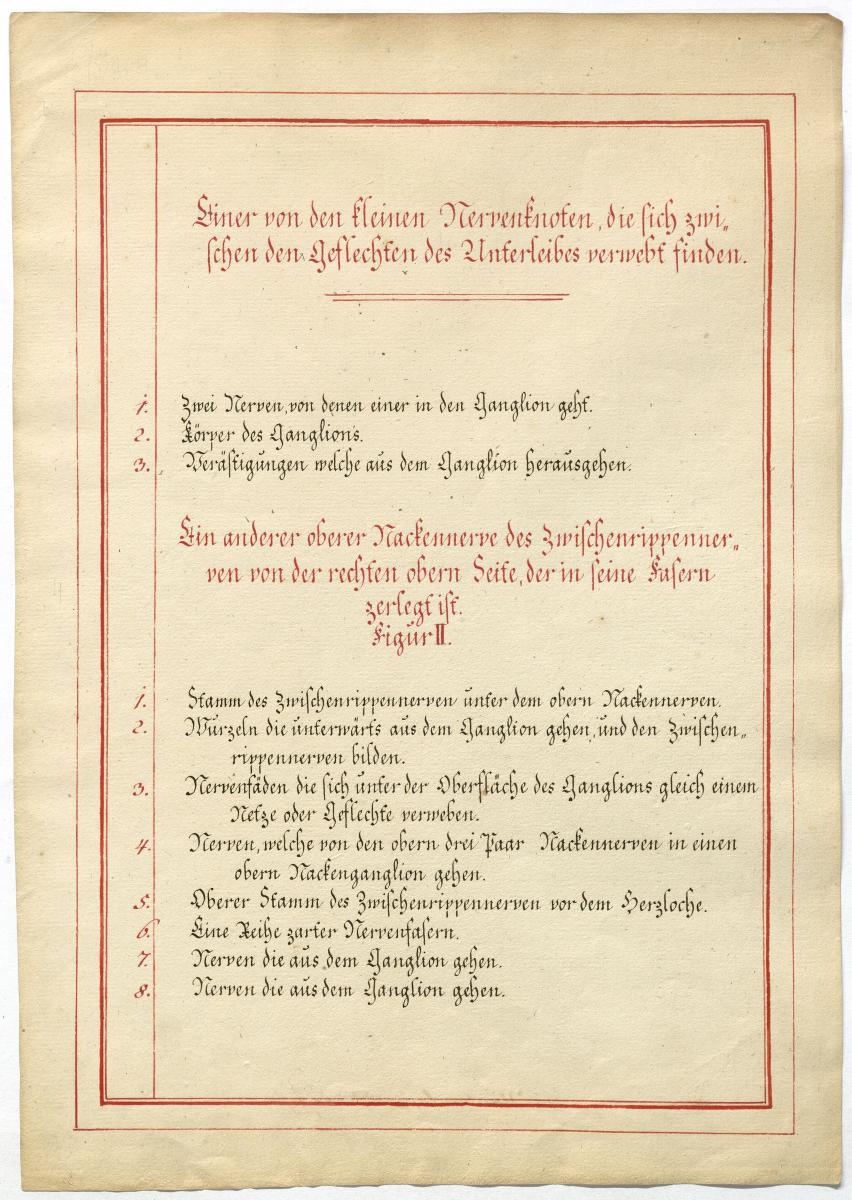 Einer von den kleinen Nervenknoten, die sich zwi„
schen den Geflechten des Unterleibes verwebt finden.
1. Zwei Nerven, von denen einer in den Ganglion geht.
2. Körper des Ganglions.
3. Verästigungen welche aus dem Ganglion herausgehen.
Ein anderer oberer Nackennerve des Zwischenrippenner„
ven von der rechten obern Seite, der in seine Fasern
zerlegt ist.
Figur II.
1. Stamm des Zwischenrippennerven unter dem obern Nackennerven.
2. Wurzeln die unterwärts aus dem Ganglion gehen, und den Zwischen„
rippennerven bilden.
3. Nervenfäden die sich unter der Oberfläche des Ganglions gleich einem
Netze oder Geflechte verweben.
4. Nerven, welche von den obern drei Paar Nackennerven in einen
obern Nackenganglion gehen.
5. Oberer Stamm des Zwischenrippennerven vor dem Herzloche.
6. Eine Reihe zarter Nervenfasern.
7. Nerven die aus dem Ganglion gehen.
8. Nerven die aus dem Ganglion gehen.